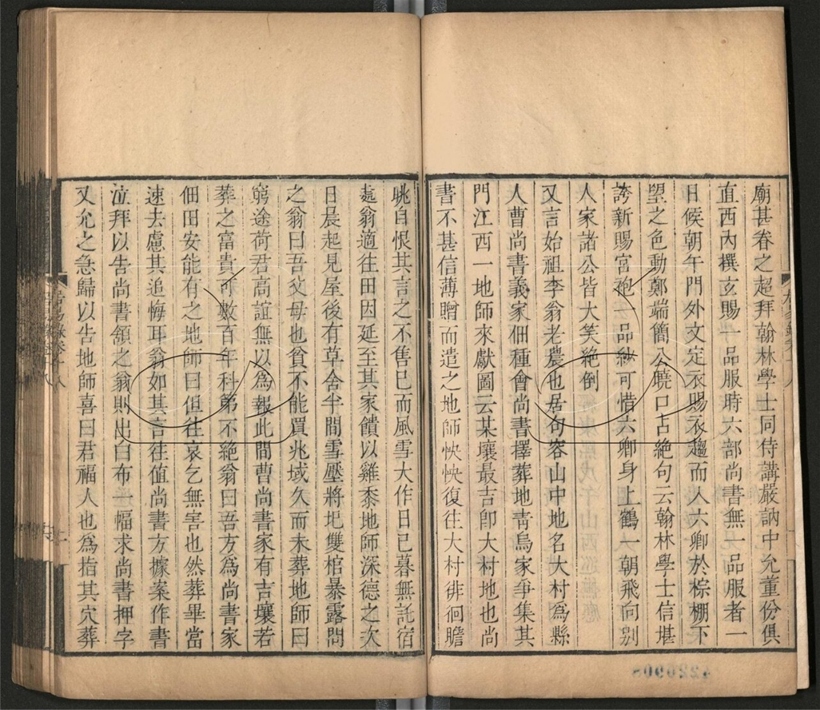 廟甚眷之超拜翰林學士同侍講嚴訥中允董份俱
直西內撰玄賜一品服時六部尚書無一品服者一
日候朝午門外文定衣賜衣趨而入六卿於棕棚下
望之色動鄭端簡公曉口占絕句云翰林學士信堪
誇新賜宮袍一品紗可惜六卿身上鶴一朝飛向別
人家諸公皆大笑絕倒
又言始祖李翁老農也居句容山中地名大村為縣
人曹尚書義家佃種會尚書擇葬地青烏家爭集其
門江西一地師來獻圖云某壤最吉卽大村地也尚
書不甚信薄贈而遣之地師怏怏復往大村徘徊瞻
眺自恨其言之不售已而風雪大作日已暮無託宿
處翁適往田因延至其家饋以雞黍地師深德之次
日晨起見屋後有草舍半間雪壓將圮雙棺暴露問
之翁曰吾父母也貧不能買兆域久而未葬地師曰
窮途荷君高誼無以為報此間曹尚書家有吉壤若
葬之富貴可數百年科第不絕翁曰吾方為尚書家
佃田安能有之地師曰但往哀乞無害也然葬畢當
速去慮其追悔耳翁如其言往值尚書方據案作書
泣拜以告尚書頷之翁則出白布一幅求尚書押字
又允之急歸以告地師喜曰君福人也為指其穴葬